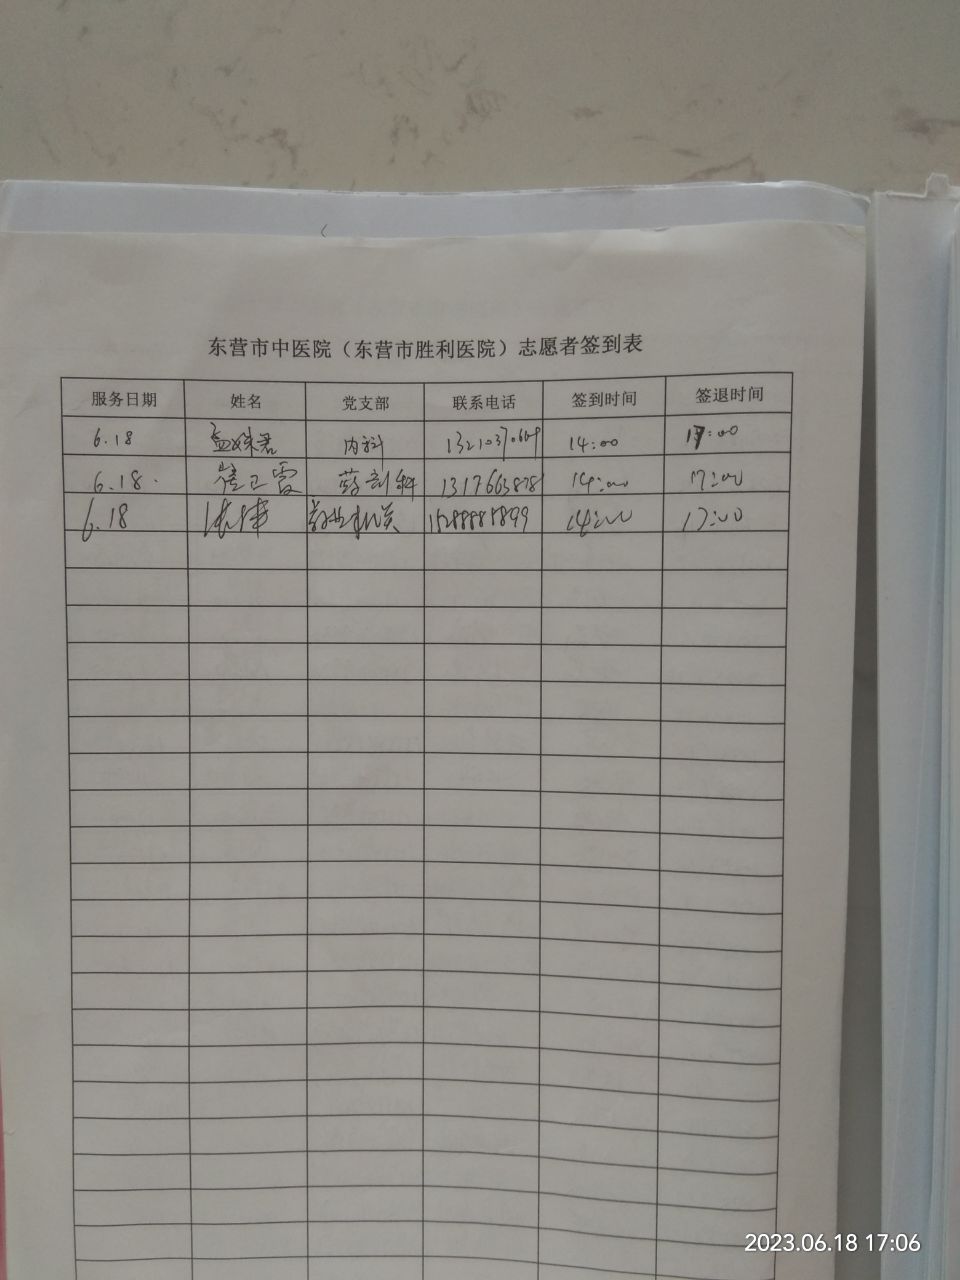 东营市中医院（东营市胜利医院）志愿者签到表
服务日期 姓名 党支部 联系电话 签到时间 签退时间
6.18 内科 14:00 17:00
6.18. 药剂科 14:00 17:00
6.18 14:00 17:00
2023.06.18 17:06